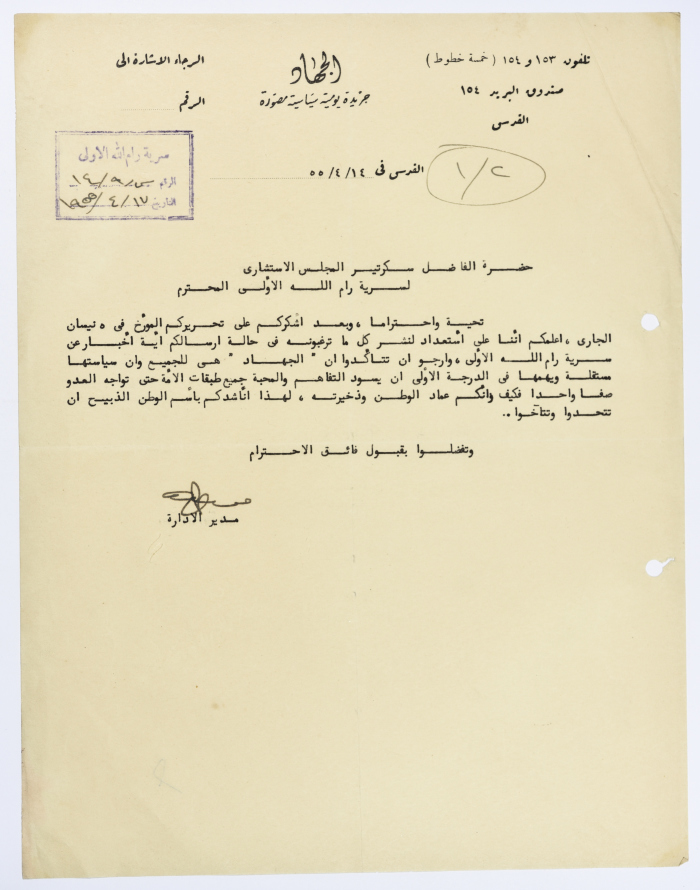 تلفون ١٥٣ و ١٥٤ ( خمسة خطوط )
صندوق البريد ١٥٤
القدس
الجهاد
جريدة يومية سياسية مصورة
الرجاء الاشارة الى
الرقم
سرية رام الله الاولى
الرقم س ر/٩/١٤
التاريخ ١٧/٤/١٩٥٥
القدس في ١٤/٤/٥٥
١/٢
حضرة الفاضل سكرتير المجلس الاستشارى
لسرية رام الله الأولى المحترم
تحية واحتراما ، وبعد اشكركم على تحريركم المؤرخ فى ٥ نيسان
الجارى ، اعلمكم اننا على أستعداد لنشر كل ما ترغبونه فى حالة ارسالكم اية أخبار عن
سرية رام الله الأولى ، وارجو ان تتأكدوا ان " الجهاد " هى للجميع وان سياستها
مستقلة ويهمها فى الدرجة الأولى ان يسود التفاهم والمحبة جميع طبقات الأمة حتى تواجه العدو
صفا واحدا فكيف وانكم عماد الوطن وذخيرته ، لهذا اناشدكم باسم الوطن الذبيح ان
تتحدوا وتتآخوا ..
وتفضلوا بقبول فائق الاحترام
مدير الادارة